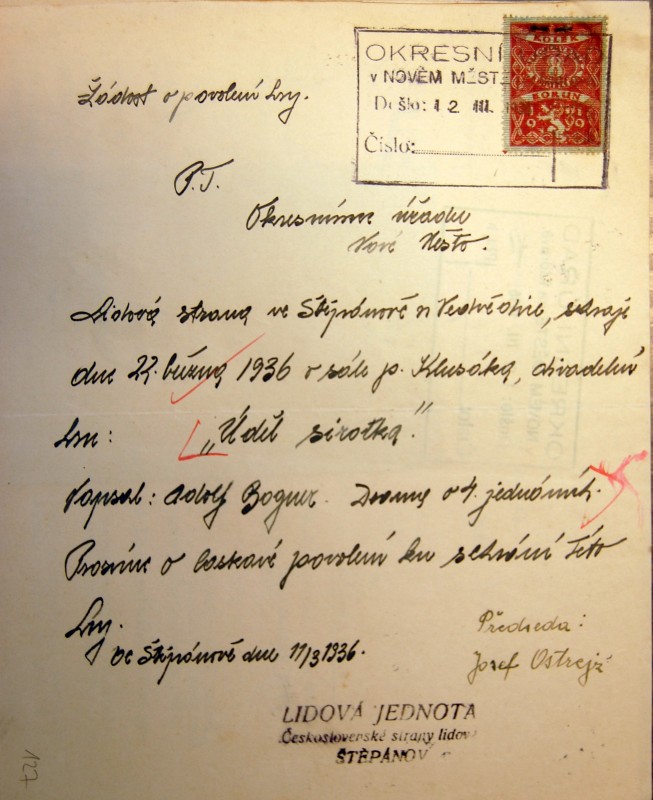 OKRESNÍ
v NOVÉM MĚSTĚ
Došlo: 12 III.
Číslo:
KOLEK
8
KORUN
Žádost o povolení hry.
P.T.
Okresnímu úřadu
Nové Město.
Lidová strana ve Štěpánově n Vedvědice, sehraje
dne 22. března 1936 v sále p. Klusáka, divadelní
hru: „Úděl sirotka."
Napsal: Adolf Bogner. Drama o 4. jednáních.
Prosíme o laskavé povolení ku sehrání této
hry.
Ve Štěpánově dne 11/3 1936.
Předseda:
Josef Ostrejž
LIDOVÁ JEDNOTA
Československé strany lidové
ŠTĚPÁNOV
127